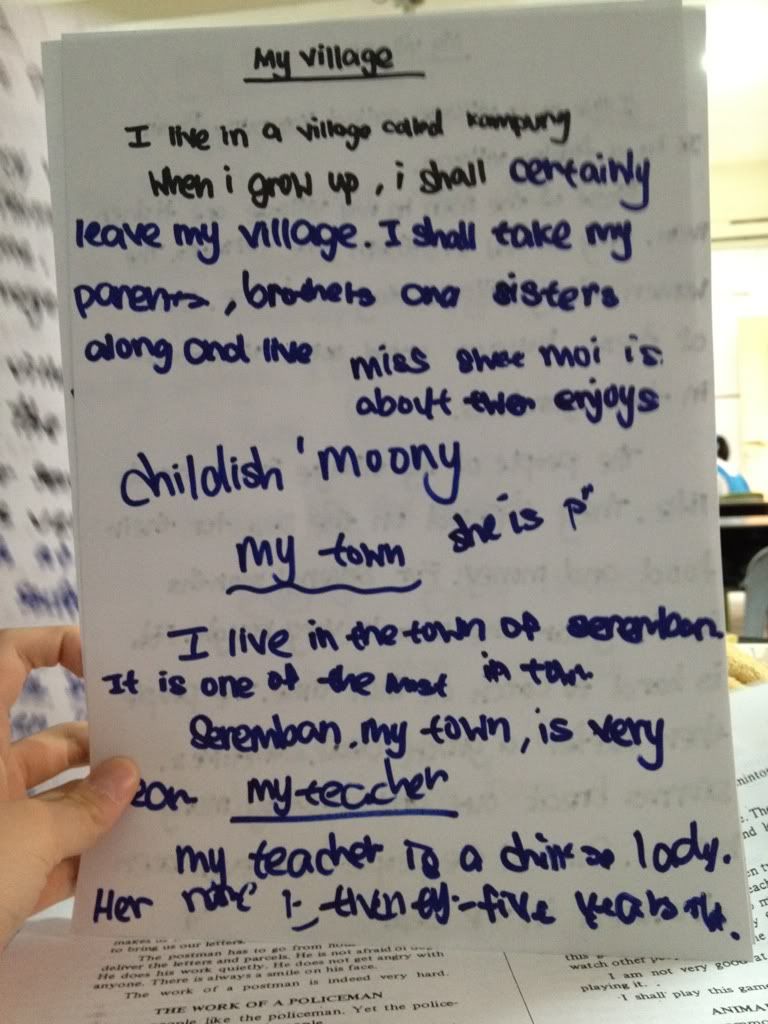 My village
I live in a village called kampung
When i grow up, i shall certainly
leave my village. I shall take my
parents, brothers and sisters
along and live
miss swee moi is
about enjoys
childish 'moony
she is p"
my town
I live in the town of seremban.
It is one of the most in town
Seremban. my town, is very
my teacher
my teacher is a lady.
Her five years old.
to bring us our letters.
The postman has to go from
deliver the letters and parcels. He is not afraid of
He does his work quietly. He does not get angry with
anyone. There is always a smile on his face.
The work of a postman is indeed very hard.
THE WORK OF A POLICEMAN
people like the policeman. Yet the police-
watch other
I am not very good at
playing it.
I shall play this game